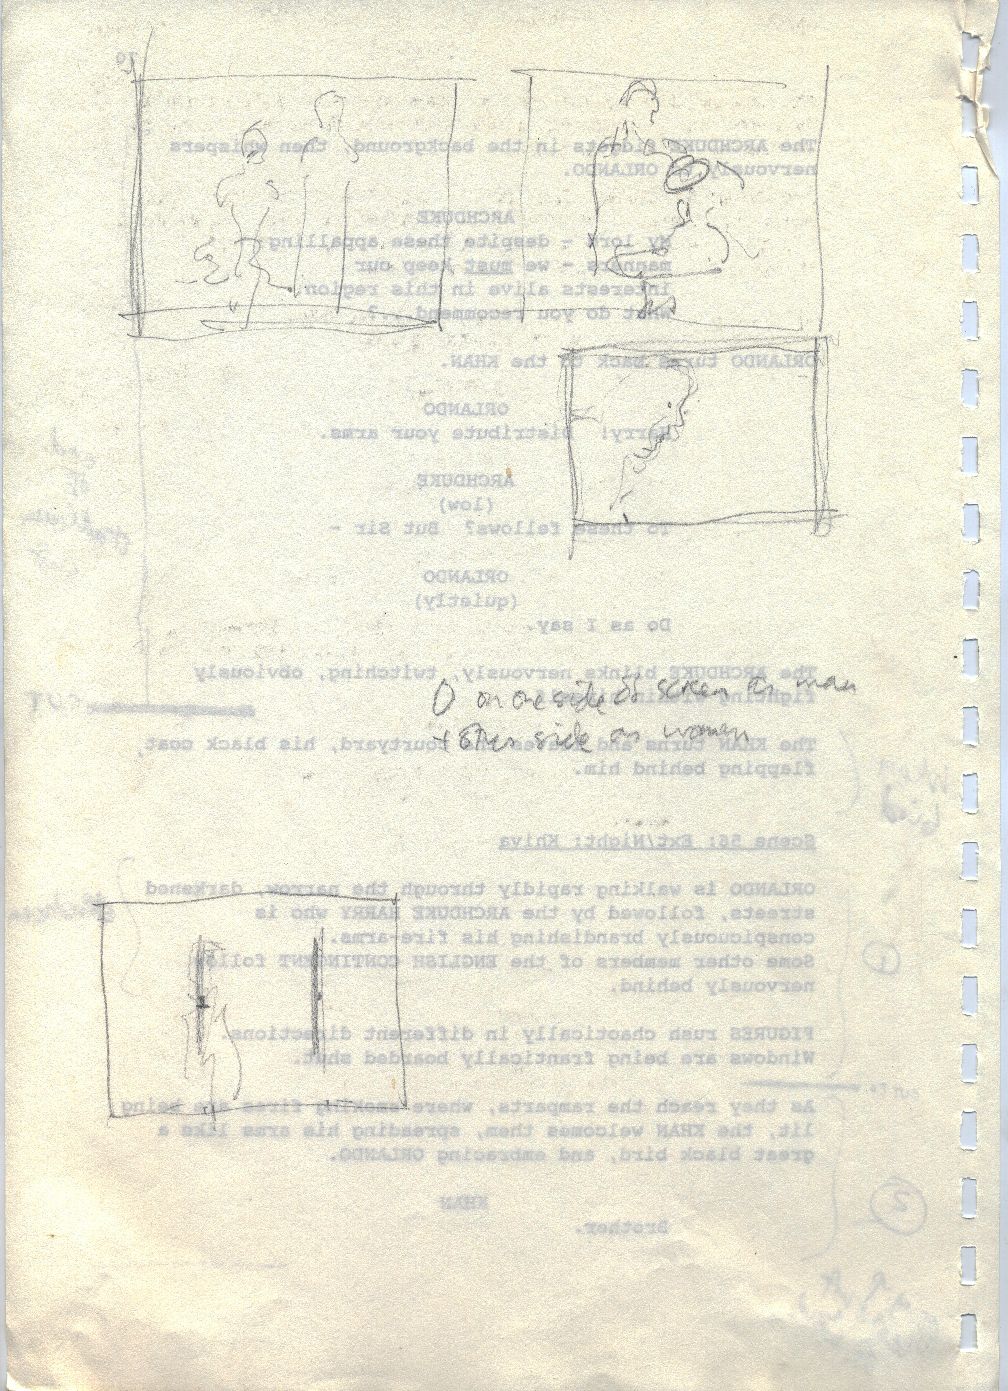 70
The ARCHDUKE fidgets in the background, then whispers
nervously to ORLANDO.
ARCHDUKE
My lord - despite these appalling
manners - we must keep our
interests alive in this region.
What do you recommend...?
ORLANDO turns back to the KHAN.
ORLANDO
Harry! Distribute your arms.
ARCHDUKE
(low)
To these fellows? But Sir -
ORLANDO
(quietly)
Do as I say.
The ARCHDUKE blinks nervously, twitching, obviously
fighting
CUT
O on one side of screen as man
+ other side as woman
The KHAN turns and the courtyard, his black coat,
flapping behind him.
Scene 56: Ext/Night: Khiva
ORLANDO is walking rapidly through the narrow, darkened
streets, followed by the ARCHDUKE HARRY who is
conspicuously brandishing his fire-arms.
Some other members of the ENGLISH CONTINGENT follow
nervously behind.
1
FIGURES rush chaotically in different directions.
Windows are being frantically boarded shut.
As they reach the ramparts, where smoking fires are being
lit, the KHAN welcomes them, spreading his arms like a
great black bird, and embracing ORLANDO.
KHAN
2
Brother.